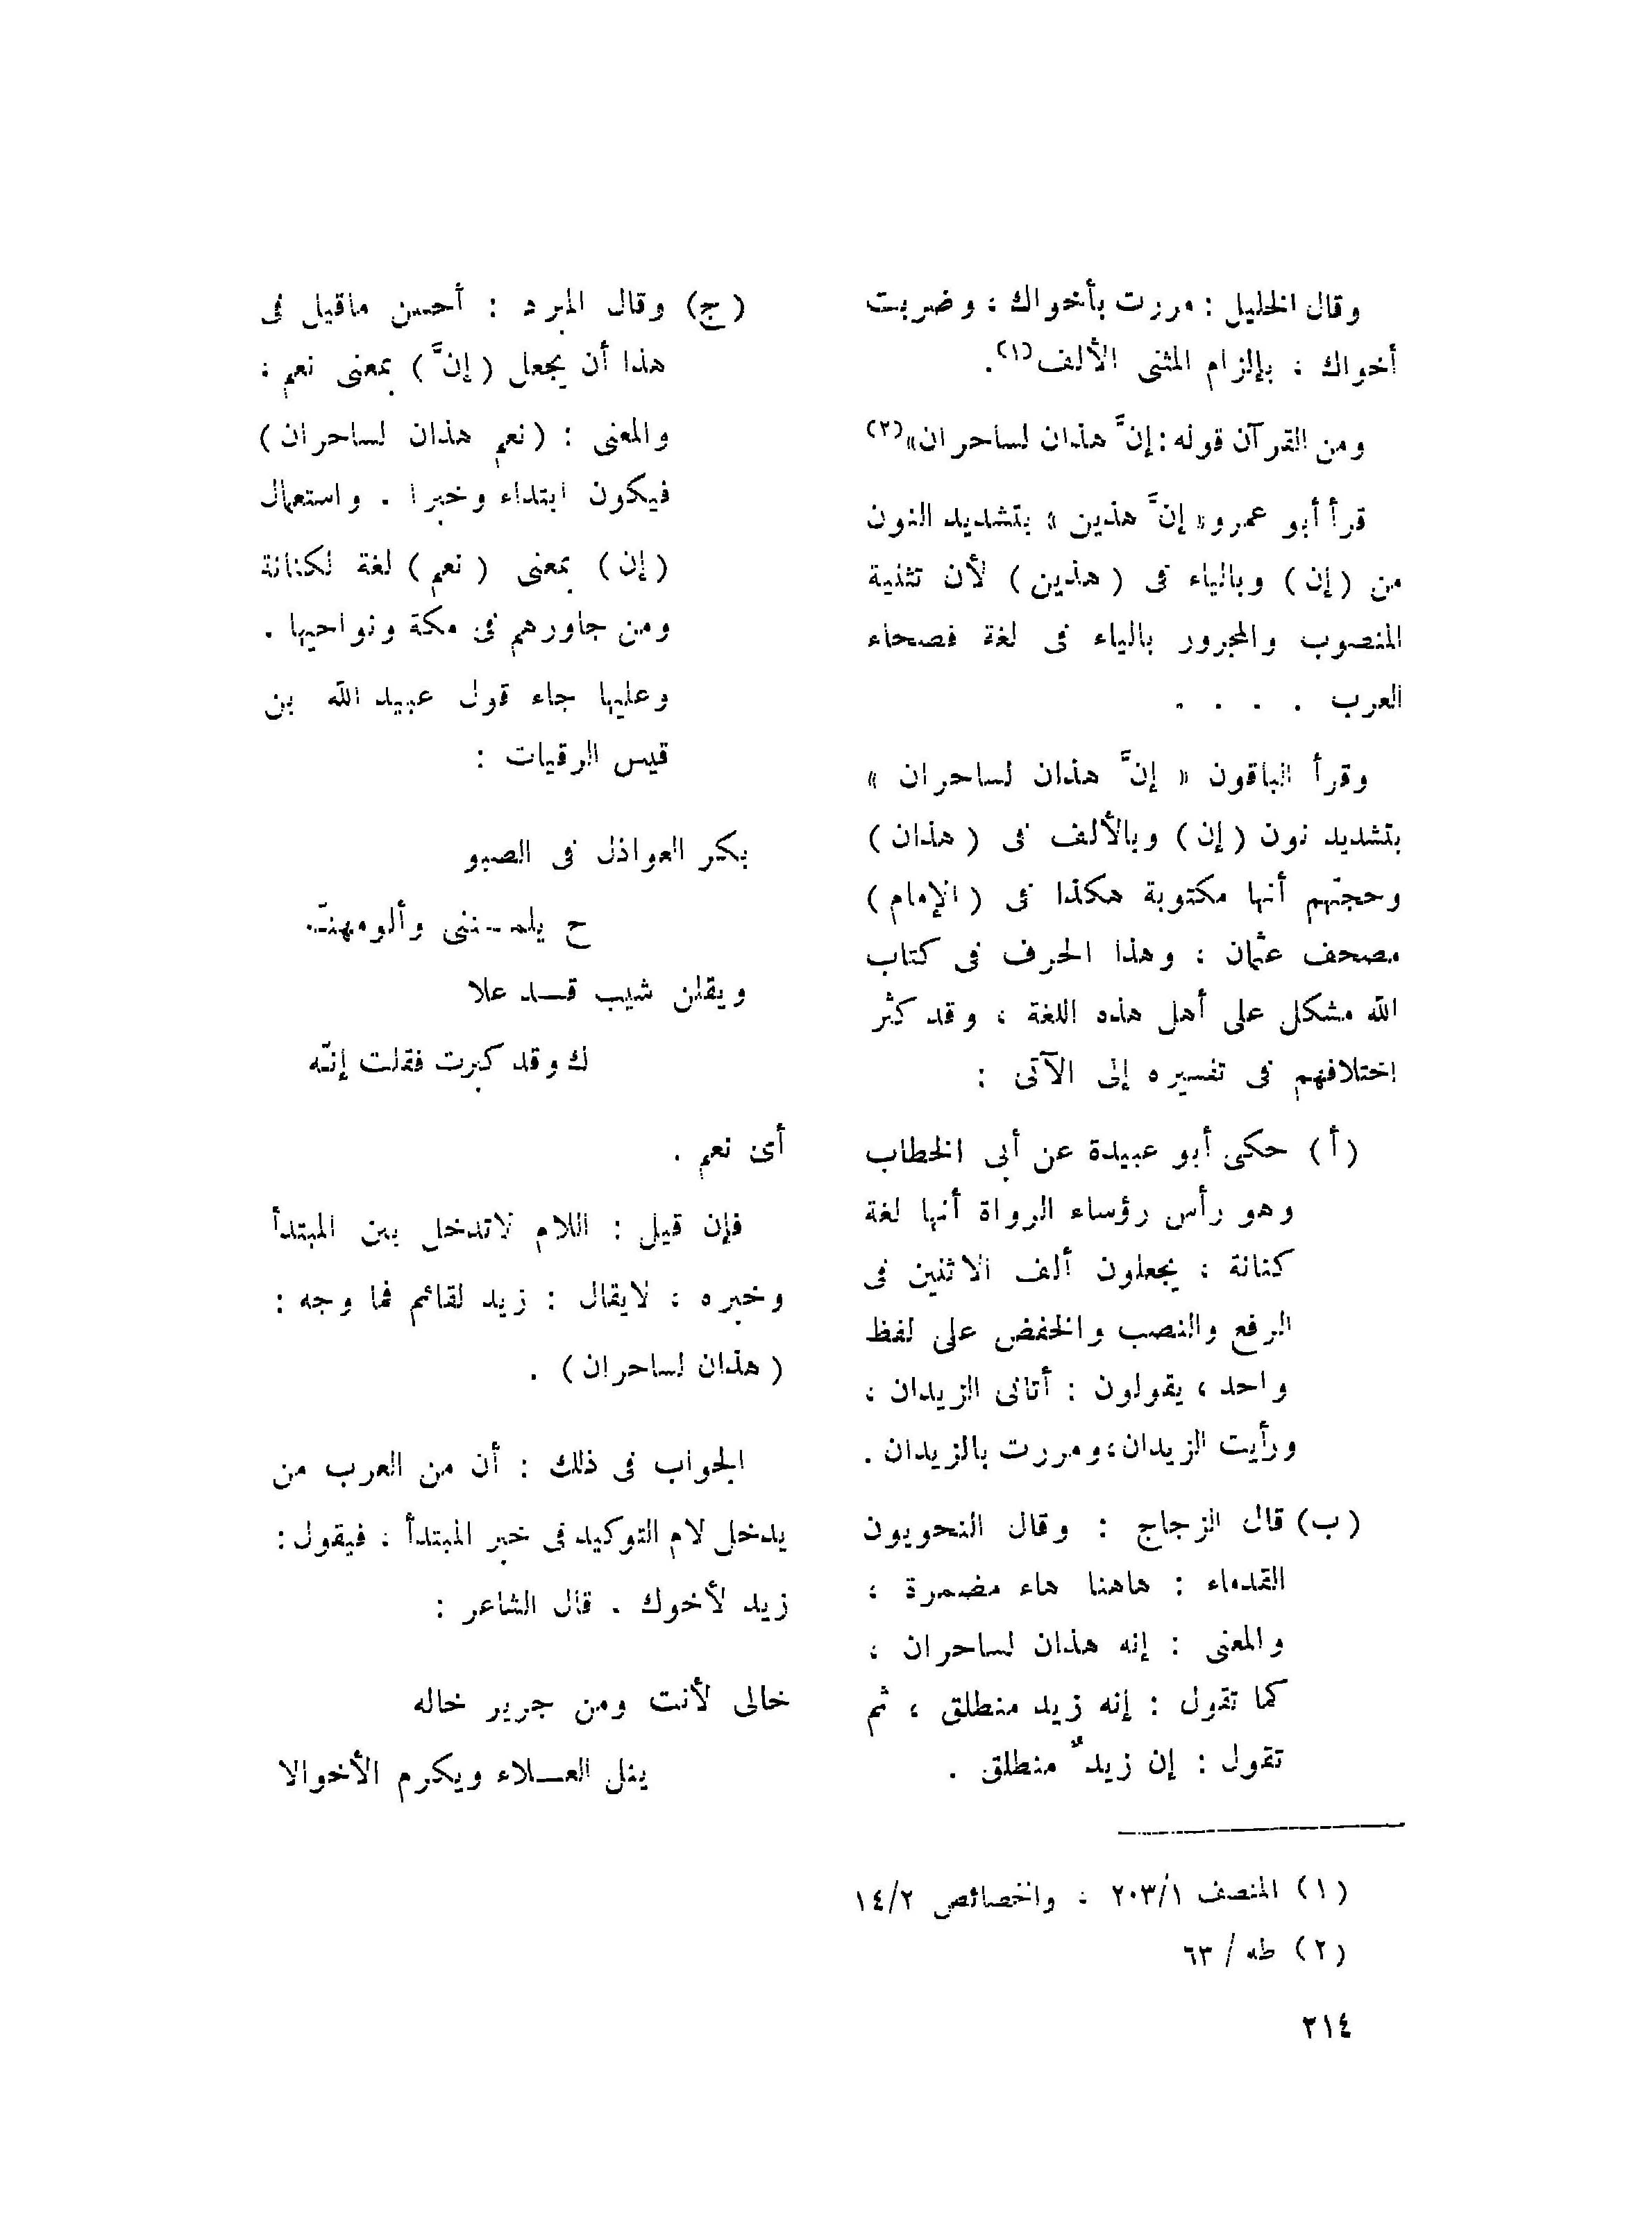 وقال الخليل : مررت بأخواك ، وضربت
أخواك ، بإلزام المثنى الألف(١).
ومن القرآن قوله : إنَّ هذان لساحران»(٢)
قرأ أبو عمرو« إنَّ هذين » بتشديد النون
من (إن) وبالياء فى (هذين) لأن تثنية
المنصوب والمجرور بالياء فى لغة فصحاء
العرب . . . .
وقرأ الباقون « إنَّ هذان لساحران »
بتشديد نون (إن) وبالألف فى (هذان)
وحجتهم أنها مكتوبة هكذا فى (الإمام)
مصحف عثمان ، وهذا الحرف فى كتاب
الله مشكل على أهل هذه اللغة ، وقد كثر
اختلافهم فى تفسيره إلى الآتى :
(أ) حكى أبو عبيدة عن أبى الخطاب
وهو رأس رؤساء الرواة أنها لغة
كنانة ، يجعلون ألف الاثنين فى
الرفع والنصب والخفض على لفظ
واحد ، يقولون : أتانى الزيدان ،
ورأيت الزيدان، ومررت بالزيدان .
(ب) قال الزجاج : وقال النحويون
القدماء : هاهنا هاء مضمرة ،
والمعنى : إنه هذان لساحران ،
كما تقول : إنه زيد منطلق ، ثم
تقول : إن زيدٌ منطلق .
(ج) وقال المبرد : أحسن ماقيل فى
هذا أن يجعل (إنَّ) بمعنى نعم ،
والمعنى : (نعم هذان لساحران)
فيكون ابتداء وخبرا . واستعمال
(إن) بمعنى (نعم) لغة لكنانة
ومن جاورهم فى مكة ونواحيها .
وعليها جاء قول عبيد الله بن
قيس الرقيات :
بكر العواذل فى الصبو
ح يلمــننى وألومهنـّه
ويقلن شيب قــد علا
ك وقد كبرت فقلت إنّه
أى نعم .
فإن قيل : اللام لاتدخل بين المبتدأ
وخبره ، لايقال : زيد لقائم فما وجه :
(هذان لساحران) .
الجواب فى ذلك : أن من العرب من
يدخل لام التوكيد فى خبر المبتدأ ، فيقول :
زيد لأخوك . قال الشاعر :
خالى لأنت ومن جرير خاله
ينل العــلاء ويكرم الأخوالا
(١) المنصف ٢٠٣/١ ، والخصائص ١٤/٢
(٢) طه / ٦٣
٢١٤